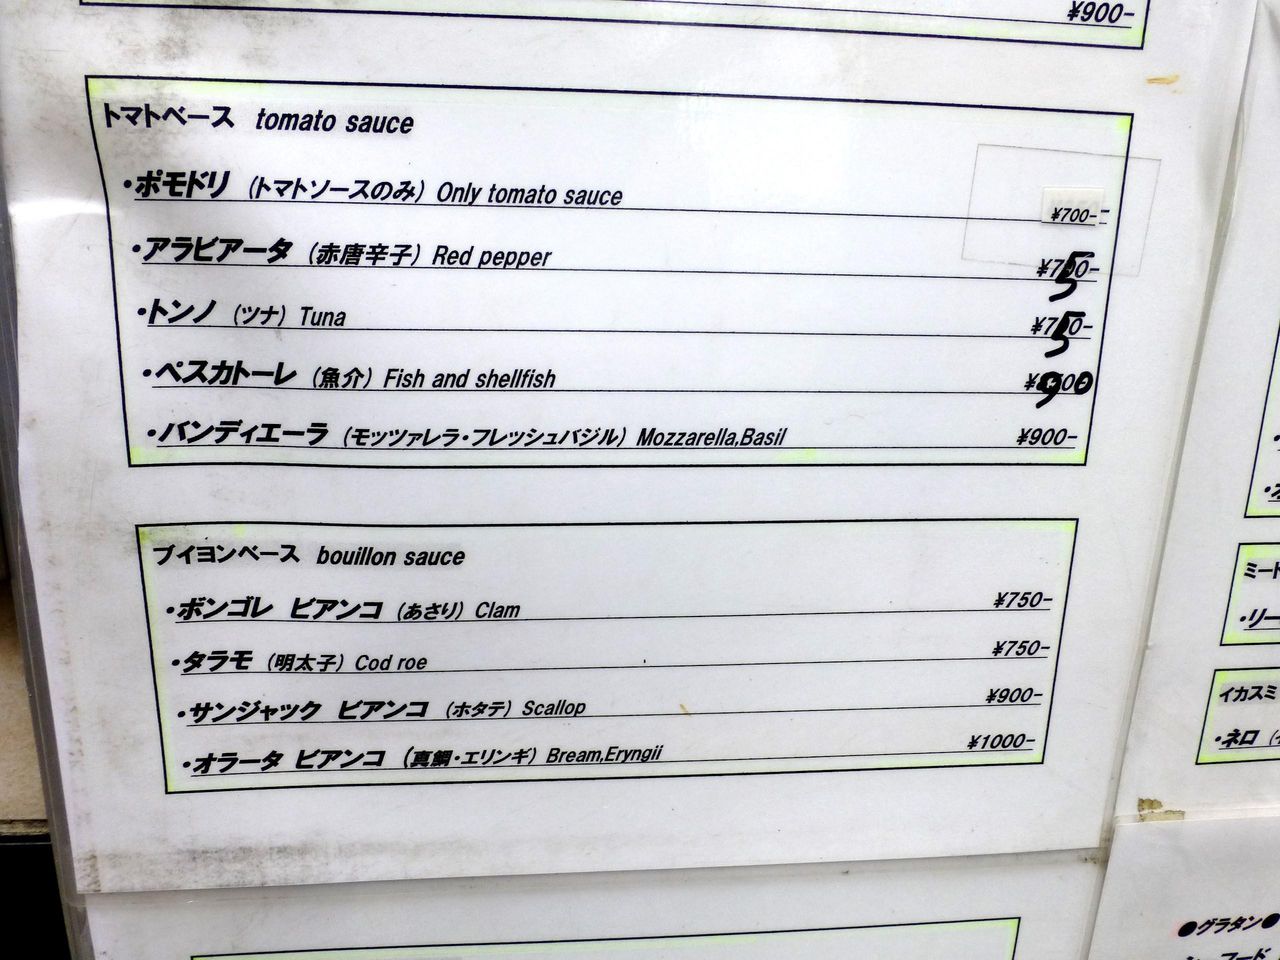 ¥900-
トマトベース tomato sauce
・ポモドリ (トマトソースのみ) Only tomato sauce ¥700-
・アラビアータ (赤唐辛子) Red pepper ¥750-
・トンノ (ツナ) Tuna ¥750-
・ペスカトーレ (魚介) Fish and shellfish ¥900
・バンディエーラ (モッツァレラ・フレッシュバジル) Mozzarella,Basil ¥900-
ブイヨンベース bouillon sauce
・ボンゴレ ビアンコ (あさり) Clam ¥750-
・タラモ (明太子) Cod roe ¥750-
・サンジャック ビアンコ (ホタテ) Scallop ¥900-
・オラータ ビアンコ (真鯛・エリンギ) Bream,Eryngii ¥1000-
ミート
・リー
イカスミ
・ネロ
●グラタン●